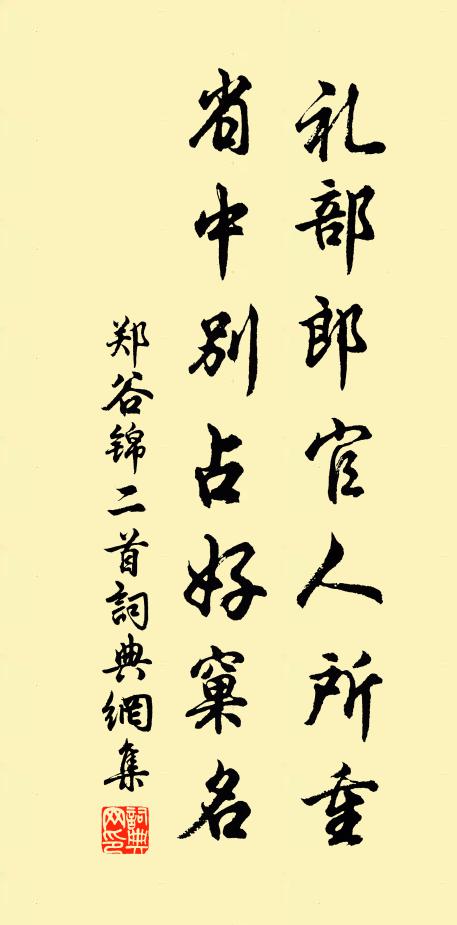 礼部郎官人所重
省中别占好窠名
郑谷锦二首詞典網集
詞典網印